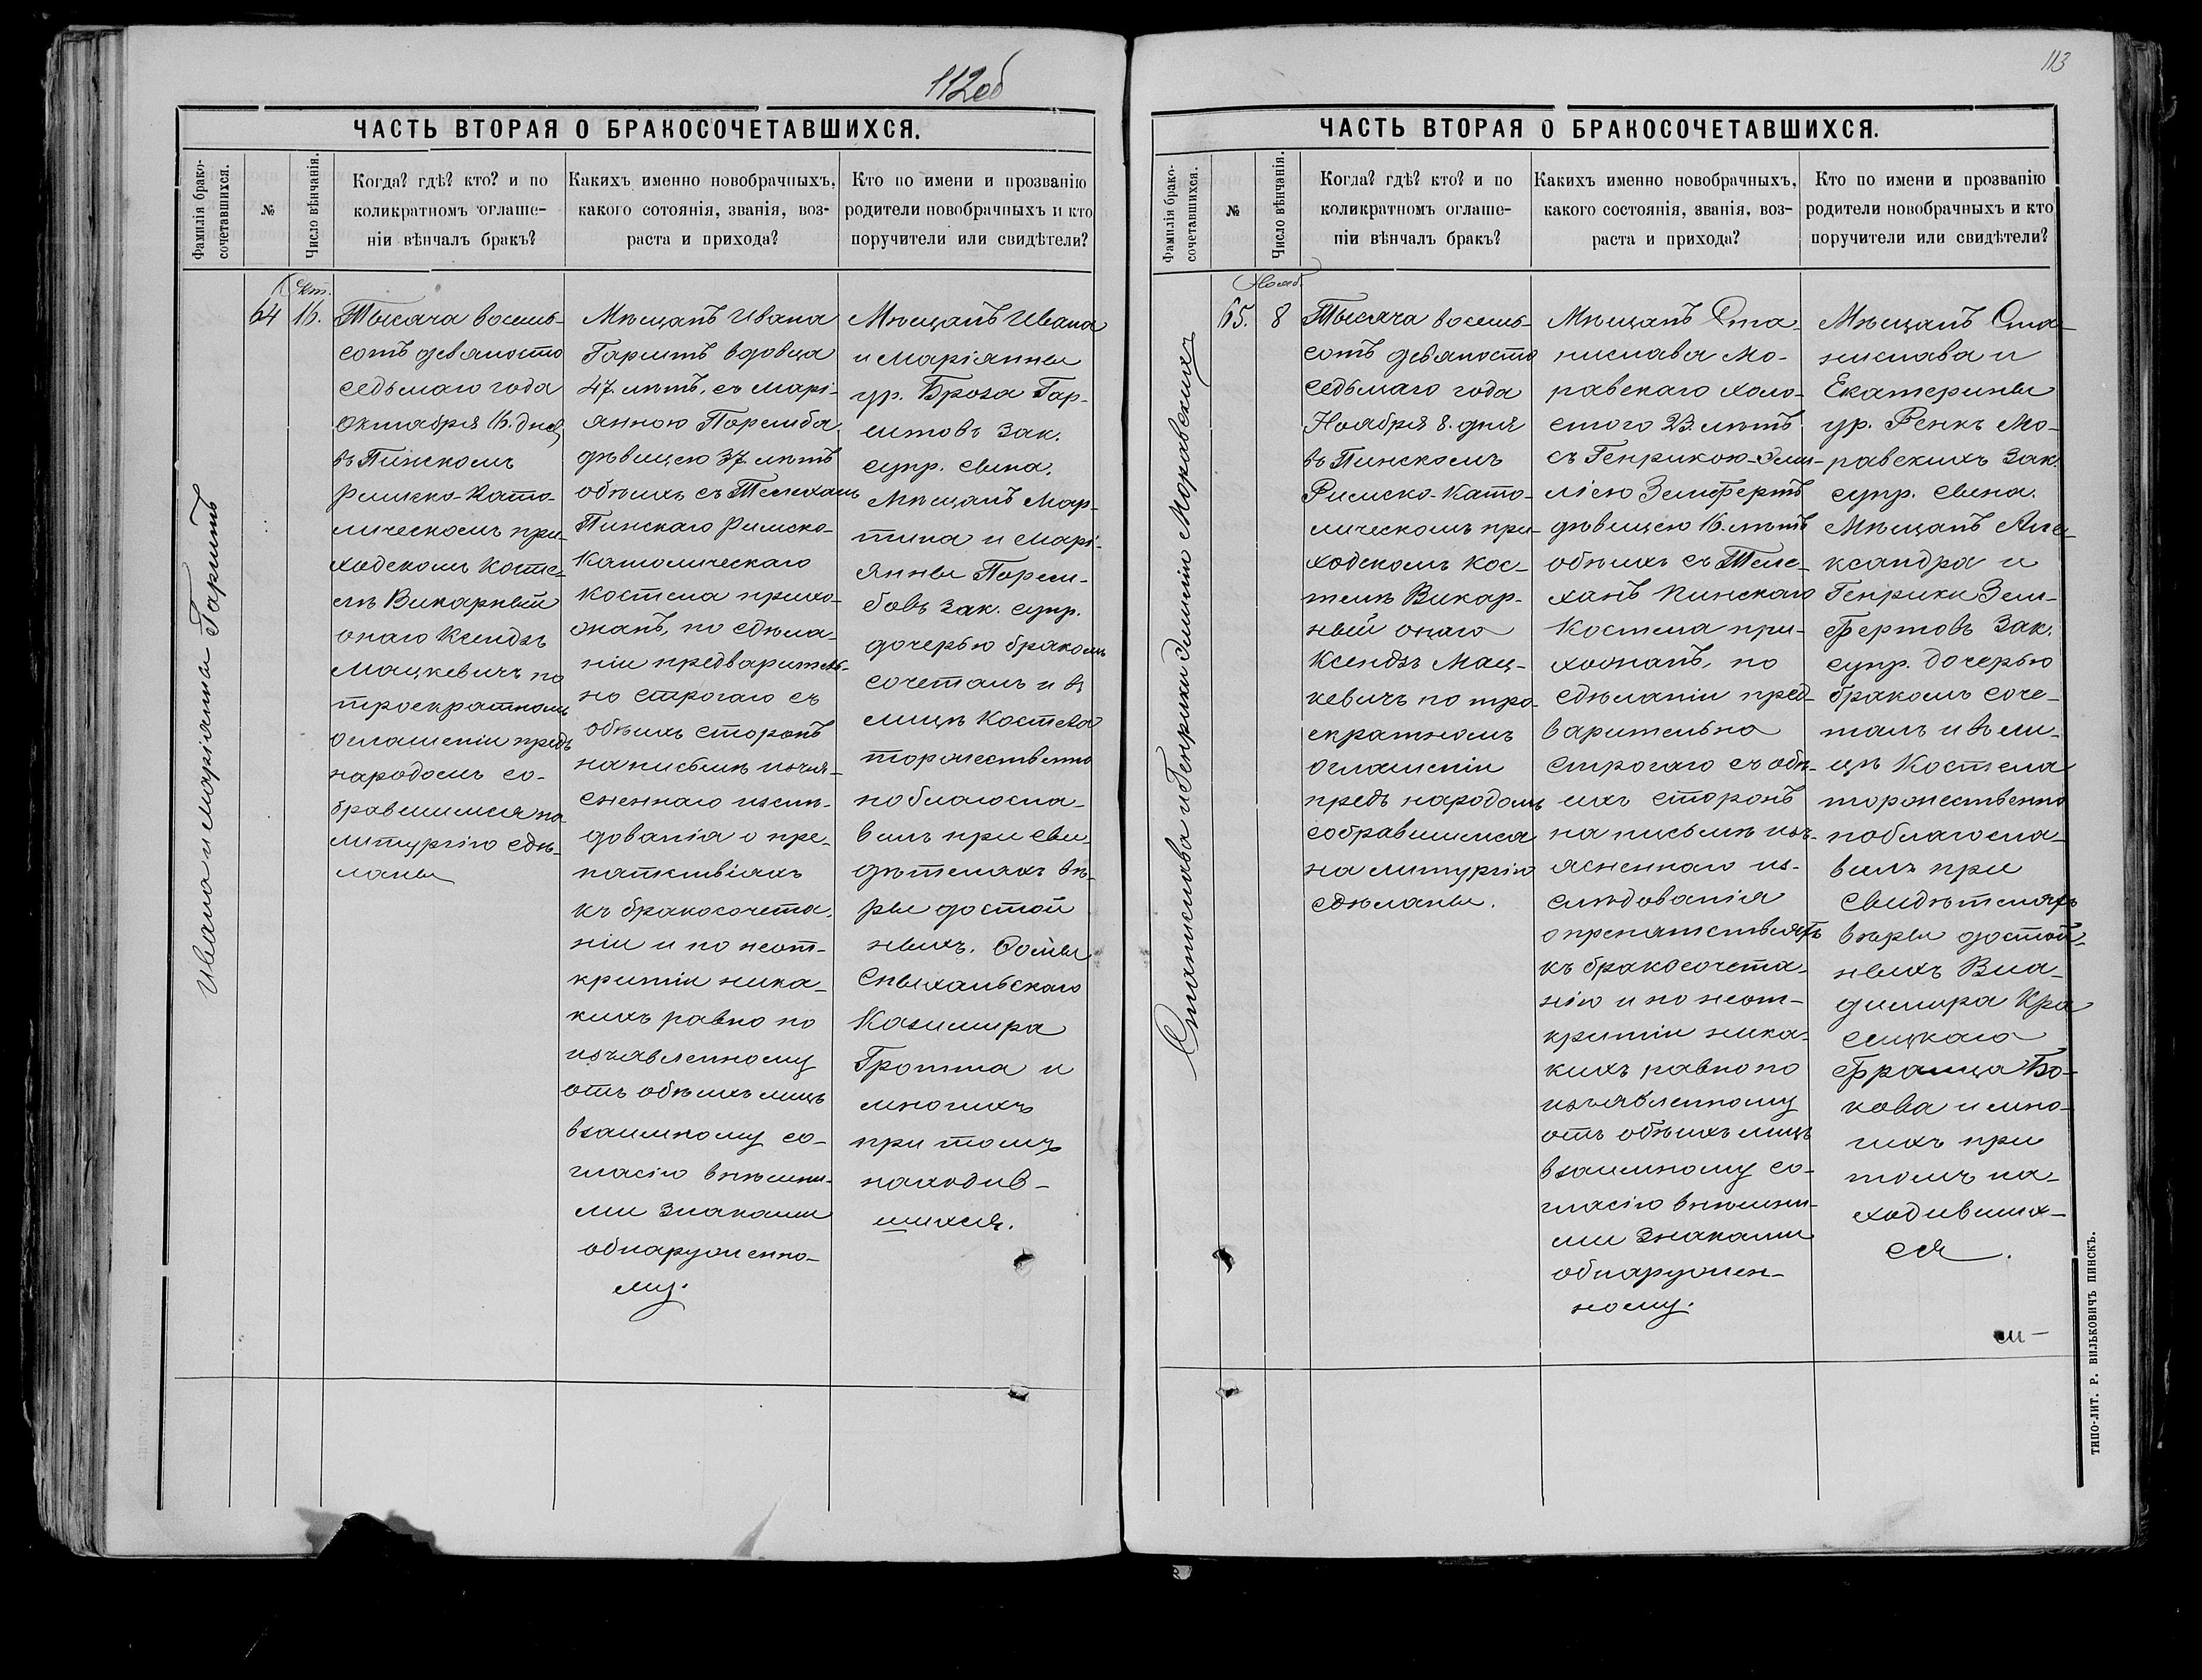 112об
ЧАСТЬ ВТОРАЯ О БРАКОСОЧЕТАВШИХСЯ.
Фамилія брако-
сочетавшихся.
№
Число вѣнчанія.
Когда? гдѣ? кто? и по
коликратномъ оглаше-
ніи вѣнчалъ бракъ?
Какихъ именно новобрачныхъ,
какого сотоянія, званія, воз-
раста и прихода?
Кто по имени и прозванію
родители новобрачныхъ и кто
поручители или свидѣтели?
Ивана и Маріанны Гаритъ
Окт.
64
16.
Тысяча восемь-
сотъ девяносто
седьмаго года
Октября 16. дня
въ Пинскомъ
Римско-Като-
лическомъ при-
ходскомъ Косте-
лѣ Викарный
онаго Ксендзъ
Мацкевичъ по
троекратномъ
оглашеніи предъ
народомъ со-
бравшимся на
литургію сдѣ-
ланы
Мѣщанъ Ивана
Гаритъ вдовца
47. лѣтъ, съ Марі-
анною Поремба
дѣвицею 37. лѣтъ
обѣихъ съ Телеханъ
Пинскаго Римско-
Католическаго
Костела прихо-
жанъ, по сдѣла-
ніи предваритель-
но строгаго съ
обѣихъ сторонъ
на письмѣ изъя-
сненнаго изслѣ-
дованія о пре-
пятствіяхъ
къ бракосочета-
ніи и по неот-
крытіи ника-
кихъ равно по
изъявленному
отъ обѣихъ лицъ
взаимному со-
гласію внѣшни-
ми знаками
обнаруженно-
му.
Мѣщанъ Ивана
и Маріанны
ур. Броза Гар-
итовъ зак.
супр. сына,
Мѣщанъ Мар-
тина и Марі-
янны Порем-
бовъ зак. супр.
дочерью бракомъ
сочеталъ и въ
лицѣ Костела
торжественно
поблагосла-
вилъ при сви-
дѣтеляхъ вѣ-
ры достой
ныхъ. Фомы
Спыхальскаго
Казимира
Гротта и
многихъ
при томъ
находив-
шихся.
113
ЧАСТЬ ВТОРАЯ О БРАКОСОЧЕТАВШИХСЯ.
Фамилія брако-
сочетавшихся.
№
Число вѣнчанія.
Когда? гдѣ? кто? и по
коликратномъ оглаше-
ніи вѣнчалъ бракъ?
Какихъ именно новобрачныхъ,
какого состоянія, званія, воз-
раста и прихода?
Кто по имени и прозванію
родители новобрачныхъ и кто
поручители или свидѣтели?
Станислава и Генрики Эмиліи Моравскихъ
Нояб.
65.
8
Тысяча восемь-
сотъ девяносто
седьмаго года
Ноября 8. дня
въ Пинскомъ
Римско-Като-
лическомъ при-
ходскомъ Кос-
телѣ Викар-
ный онаго
Ксендзъ Мац-
кевичъ по тро-
екратномъ
оглашеніи
предъ народомъ
собравшимся
на литургію
сдѣланы.
Мѣщанъ Ста-
нислава Мо-
равскаго холо-
стого 23. лѣтъ
съ Генрикою-Эми-
ліею Земфертъ
дѣвицею 16. лѣтъ
обѣихъ съ Теле-
ханъ Пинскаго
Костела при-
хожанъ, по
сдѣланіи пред-
варительно
строгаго съ обѣ-
ихъ сторонъ
на письмѣ изъ-
ясненнаго из-
слѣдованія
о препятствіяхъ
къ бракосочета-
нію и по неот-
крытіи ника-
кихъ равно по
изъявленному
отъ обѣихъ лицъ
взаимному со-
гласію внѣшни-
ми знаками
обнаружен-
ному.
Мѣщанъ Ста-
нислава и
Екатерины
ур. Ренкъ Мо-
равскихъ зак.
супр. сына.
Мѣщанъ Але-
ксандра и
Генрики Зем-
фертовъ зак.
супр. дочерью
бракомъ соче-
талъ и въ ли-
цѣ Костела
торжественно
поблагосла-
вилъ при
свидѣтеляхъ
вѣры достой-
ныхъ Вла-
димира Кра
сицкаго
Франца Бо-
кова и мно-
гихъ при
томъ на-
ходивших-
ся.
ТИПО-ЛИТ. Р. ВИЛЬКОВИЧЪ ПИНСКЪ.